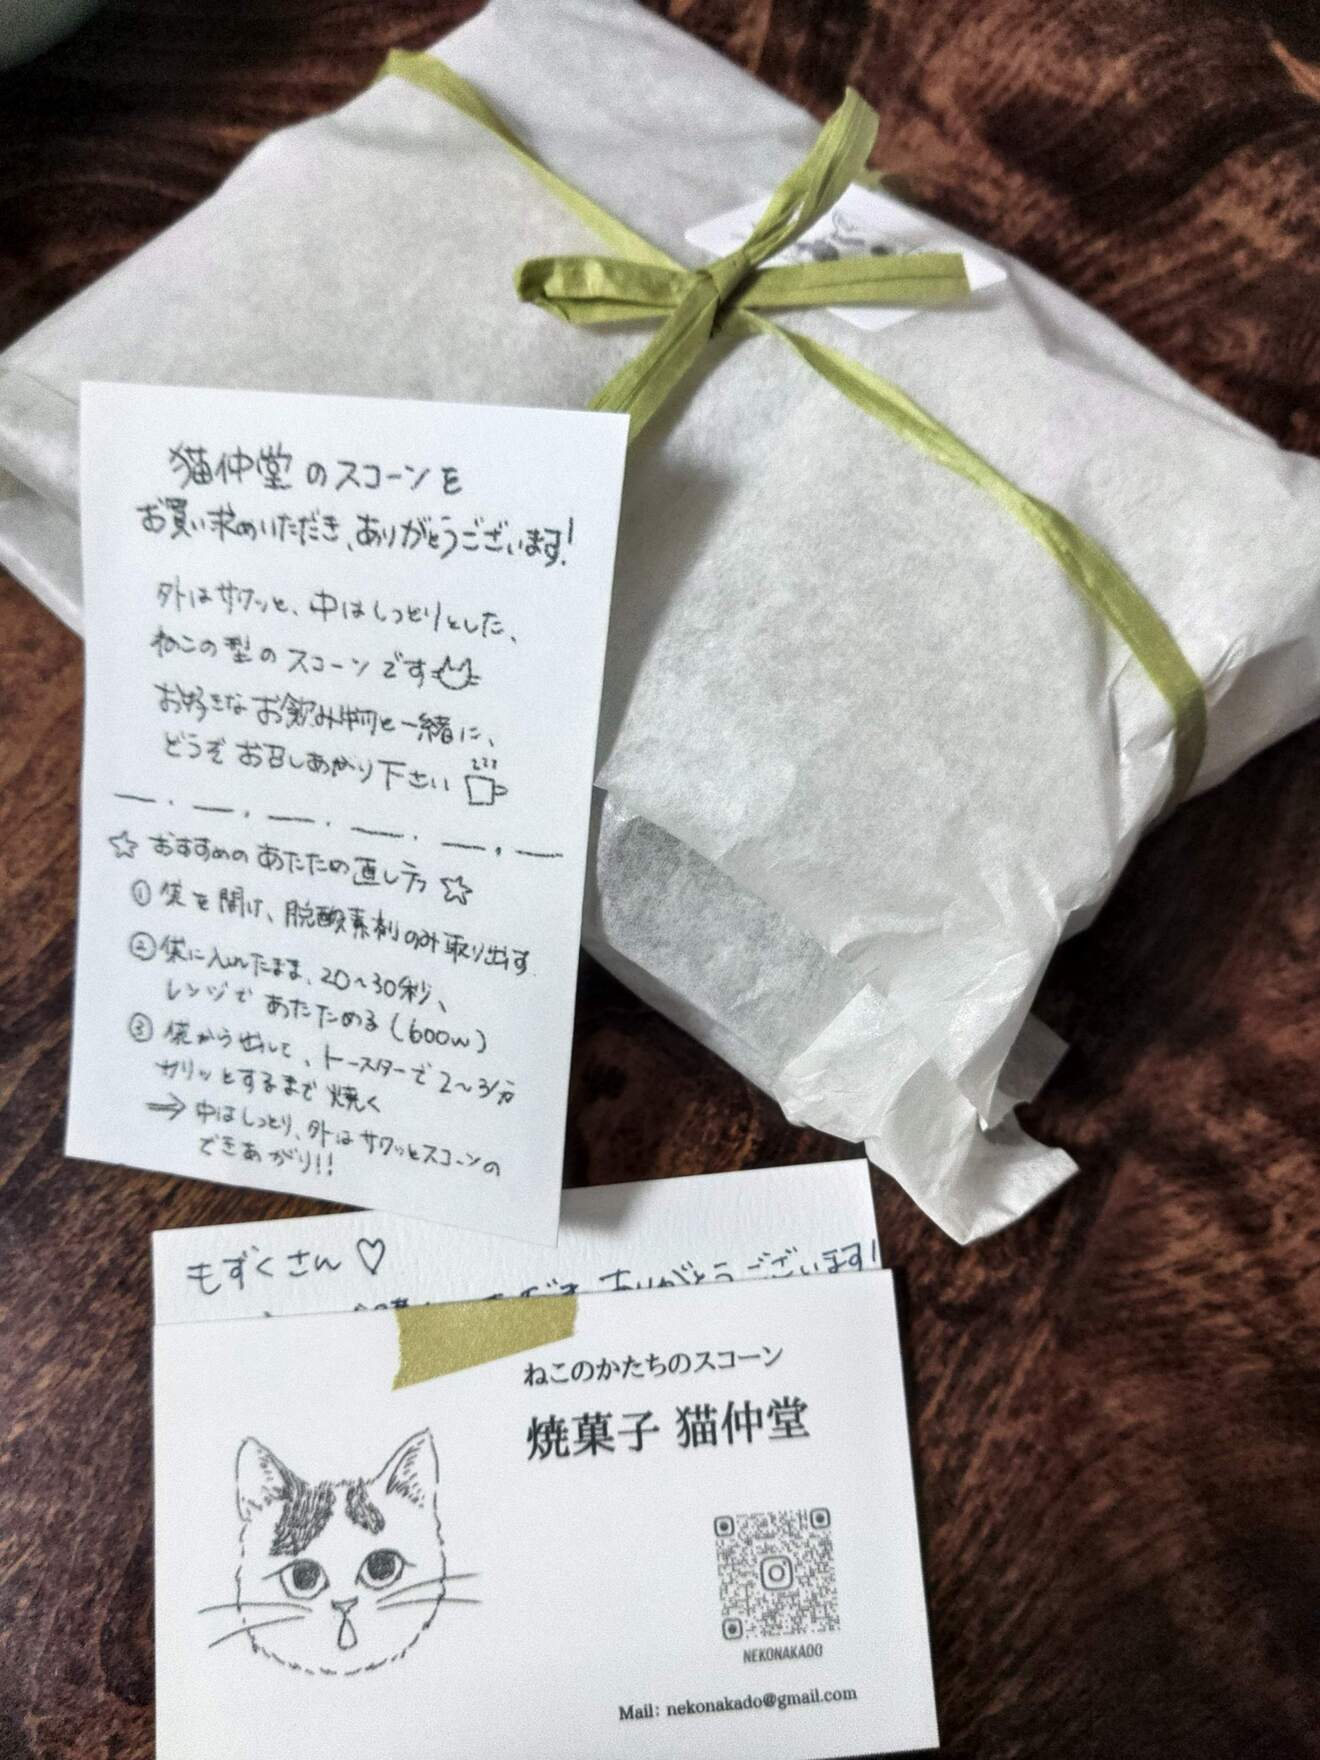 猫仲堂のスコーンを
お買い求めいただき、ありがとうございます！
外はサクッと、中はしっとりとした、
ねこの型のスコーンです
お好きなお飲み物と一緒に、
どうぞお召しあがり下さい
☆おすすめのあたため直し方☆
①袋を開け、脱酸素剤のみ取り出す
②袋に入れたまま、20～30秒、
レンジであたためる（600w）
③袋から出して、トースターで2～3分
サリッとするまで焼く
→中はしっとり、外はサクッとスコーンの
できあがり!!
もずくさん♡
ありがとうございます！
ねこのかたちのスコーン
焼菓子 猫仲堂
NEKONAKADO
Mail: nekonakado@gmail.com